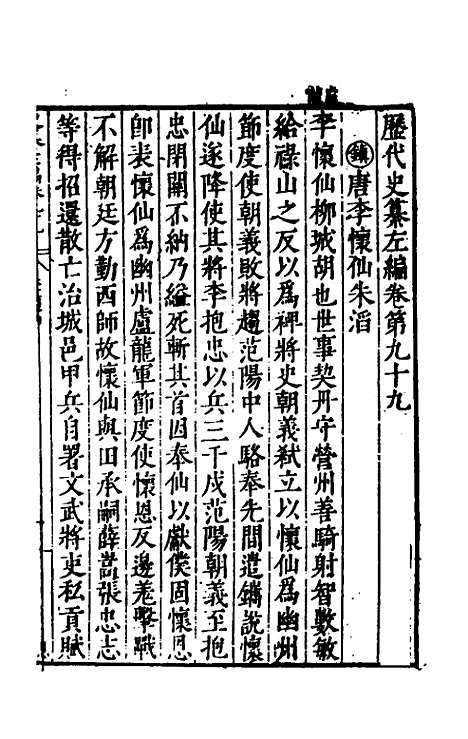 歷代史纂左編卷第九十九
鎮唐李懷仙朱滔
李懷仙柳城胡也世事契丹守營州善騎射智數敏
給祿山之反以爲裨將史朝義弒立以懷仙爲幽州
節度使朝義敗將趨范陽中人駱奉先間遣鐫說懷
仙遂降使其將李抱忠以兵三千戍范陽朝義至抱
忠閉關不納乃縊死斬其首因奉仙以獻僕固懷恩
卽表懷仙爲幽州盧龍軍節度使懷恩反邊羗擊戰
不解朝廷方勤西師故懷仙與田承嗣薛嵩張忠志
等得招還散亡治城邑甲兵自署文武將吏私貢賦